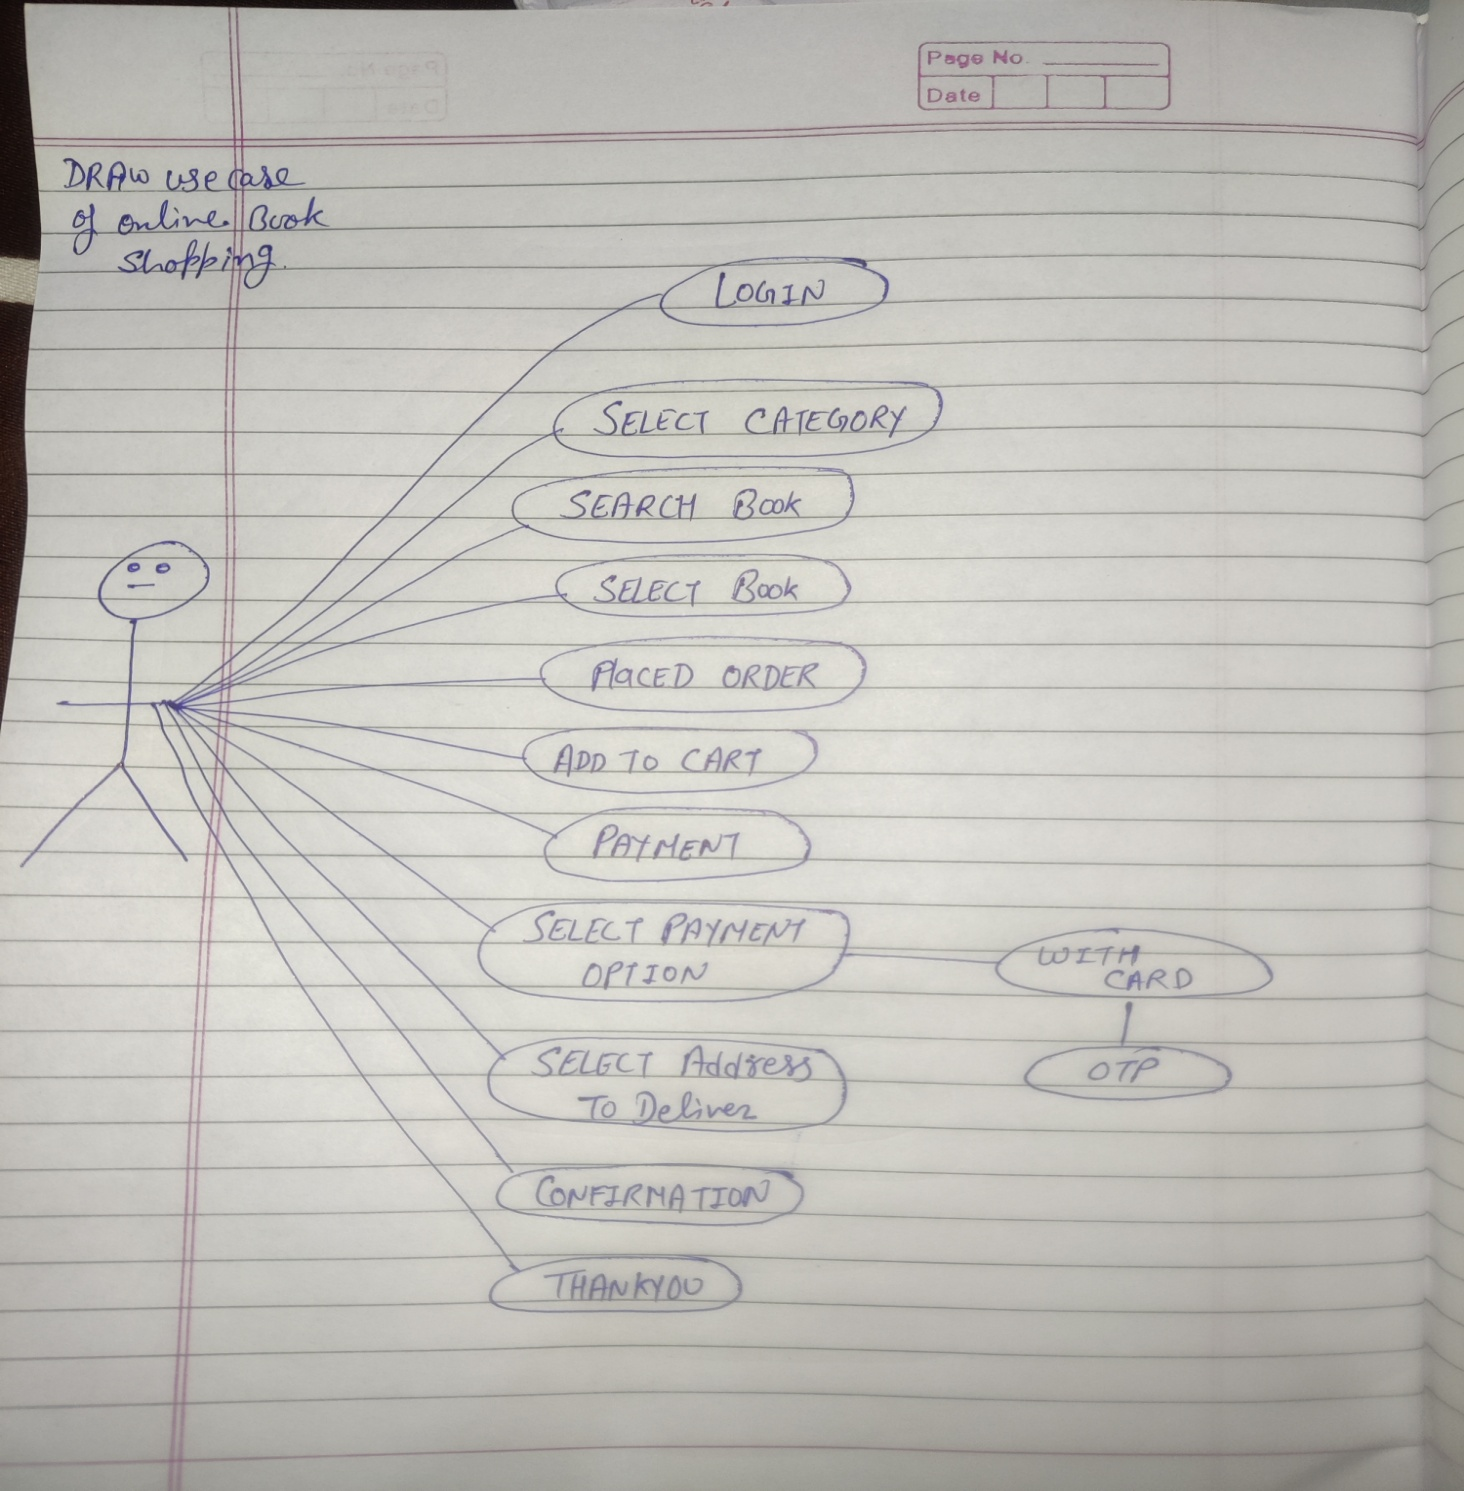 Page No.
Date
DRAW use case
of online Book
Shopping.
LOGIN
SELECT CATEGORY
SEARCH Book
SELECT Book
PlaCED ORDER
ADD TO CART
PAYMENT
SELECT PAYMENT
OPTION
WITH
CARD
OTP
SELECT Address
To Deliver
CONFIRMATION
THANKYOU